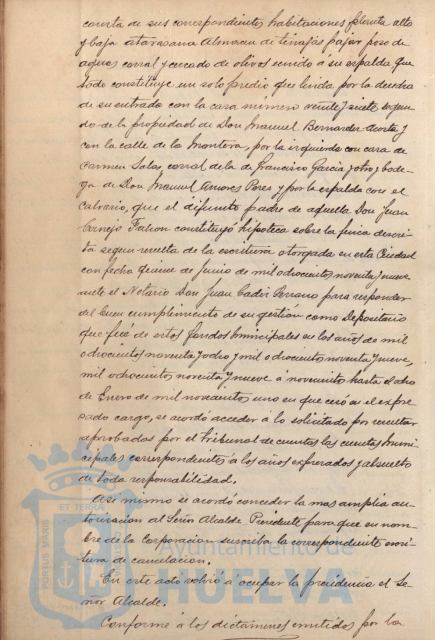 consta de sus correspondientes habitaciones planta alta
y baja atarazana Almacen de tinajas pajar pozo de
aguas corral y cercado de olivos unido á su espalda que
todo constituye un solo predio que linda por la derecha
de su entrada con la casa número veinte y siete segun
do de la propiedad de Don Manuel Bernardez Acosta y
con la calle de la Montera, por la izquierda con casa de
Carmen Salas, corral de la de Francisco Garcia y otro y bode-
ga de Don Manuel Amores Peres y por la espalda con el
Calvario, que el difunto padre de aquella Don Juan
Cornejo constituyó hipoteca sobre la finca descri-
ta segun resulta de la escritura otorgada en esta Ciudad
con fecha quince de Junio de mil ochocientos noventa y nueve
ante el Notario Don Juan Cadiz Serrano para responder
del buen cumplimiento de su gestión como Depositario
que fué de estos fondos municipales en los años de mil
ochocientos noventa y ocho y mil ochocientos noventa y nueve,
mil ochocientos noventa y nueve á novecientos hasta el dia
de Enero de mil novecientos uno en que cesó en el expre-
sado cargo, se acordó acceder á lo solicitado por resultar
aprobadas por el tribunal de cuentas las cuentas muni-
cipales correspondientes á los años expresados y absuelto
de toda responsabilidad.
Asi mismo se acordó conceder la mas amplia au-
torizacion al Señor Alcalde Presidente para que en nom-
bre de la Corporacion suscriba la correspondiente escri-
tura de cancelacion.
En este acto volvió a ocupar la presidencia el Se-
ñor Alcalde.
Conforme á los dictámenes emitidos por la
PORTUS MARIS ET TERRÆ
Ayuntamiento de
HUELVA